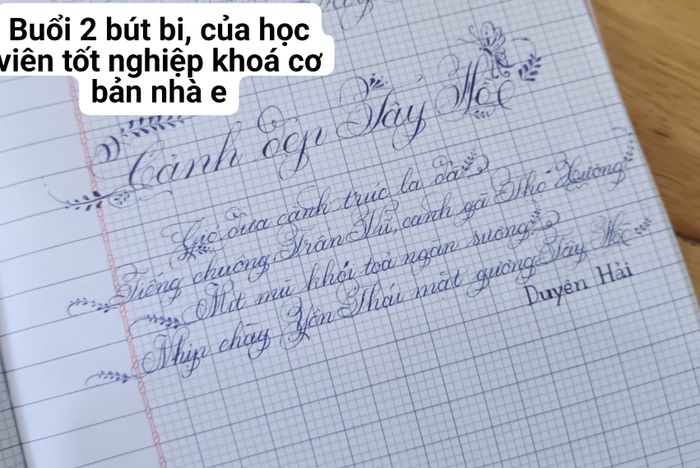 Buổi 2 bút bi, của học
viên tốt nghiệp khoá cơ
bản nhà e
Cảnh đẹp Tây Hồ
Gió đưa cành trúc la đà
Tiếng chuông Trấn Vũ, canh gà Thọ Xương
Mịt mù khói toả ngàn sương
Nhịp chày Yên Thái mặt gương Tây Hồ
Duyên Hải